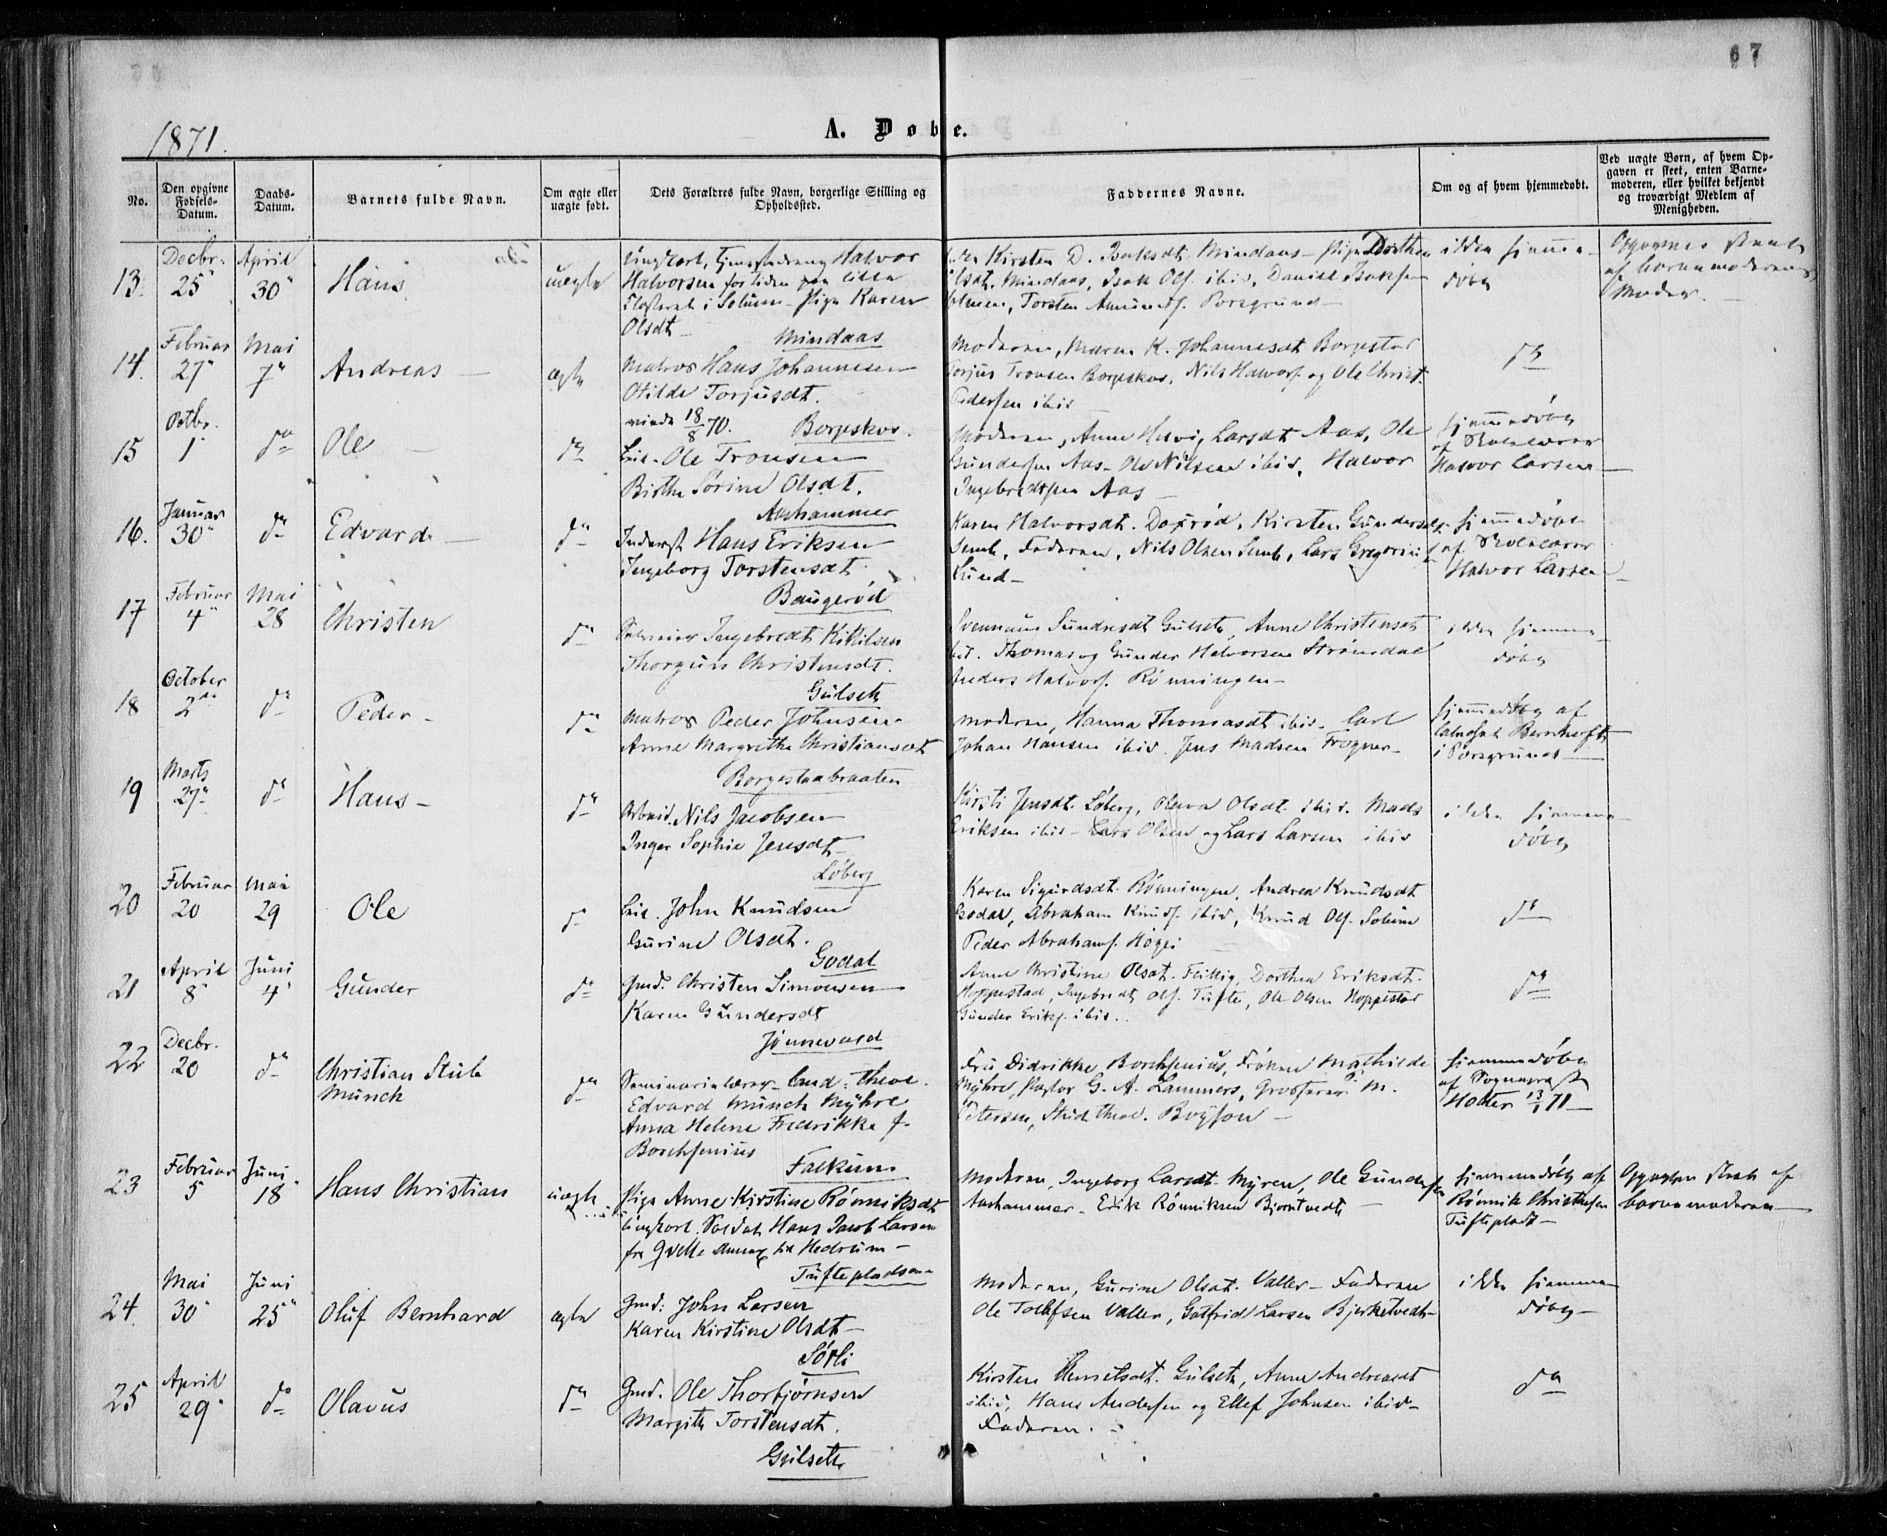 67
1871.
A. Døbe.
No.
Den opgivne Fødsels-Datum.
Daabs-Datum.
Barnets fulde Navn.
Om ægte eller uægte født.
Dets Forældres fulde Navn, borgerlige Stilling og Opholdssted.
Faddernes Navne.
Om og af hvem hjemmedøbt.
Ved uægte Børn, af hvem Opgaven er skeet, enten Barnemoderen, eller hvilket bekjendt og troværdigt Medlem af Menigheden.
13.
Decbr. 25
April 30
Hans
uægte
Ungkarl, Halvor
Halvorsen for tiden paa lille
i Solum - Pige Karen
Olsdt
Mindaas
Kirsten D. Isaksdt. Mindaas - Pige Dorthea
Olsdt. Mindaas, Isak Ols. ibid, Daniel Isaksen
Torsten Amunds. Porsgrund
ikke hjemmedøbt
af barnemoderens
Moder.
14.
Februar 27
Mai 7
Andreas
ægte
Matros Hans Johannesen
Otilde Torjusdt.
viede 18/8 70. Borgeskov.
Moderen, Maren K. Johannesdt Borgestad
Torjus Tronsen Borgeskov, Nils Halvors. og Ole Christ.
Pedersen ibid
do
15
Octbr. 1
do
Ole
do
Leil. Ole Tronsen
Birthe Sørine Olsdt.
Aashammer
Moderen, Anne Hedvig Larsdt Aas, Ole
Gundersen Aas - Ole Nilsen ibid, Halvor
Ingebretsen Aas
hjemmedøbt
af Skolelærer
Halvor Larsen
16.
Januar 30
do
Edvard
do
Inderst Hans Eriksen
Ingeborg Torstensdt
Baugerød
Karen Halvorsdt. Kirsten Gundersdt.
Semb, Faderen, Nils Olsen Semb, Lars Gregorius
Lund
hjemmedøbt
af Skolelærer
Halvor Larsen
17
Februar 4
Mai 28
Christen
do
Selveier Ingebredt Kittilsen
Thorgun Christensdt.
Gulseth
Gulseth, Anne Christensdt
ibid. Thomas og Gunder Halvorsen Strømdal
Anders Halvors. Rønningen
ikke hjemmedøbt
18
October 2den
do
Peder
do
Matros Peder Johnsen
Anne Margrethe Christiansdt
Borgestabraaten
Moderen, Hanna Thomasdt ibid. Carl
Johan Hansen ibid. Jens Madsen Frogner
hjemmedøbt af
i Porsgrund
19
Marts 27
do
Hans
do
Arbeid. Nils Jacobsen
Inger Sophie Jensdt
Løberg
Kirsti Jensdt. Løberg, Olava Olsdt. ibid. Mads
Eriksen ibid - Lars Olsen og Lars Larsen ibid
ikke hjemmedøbt
20
Februar 20
Mai 29
Ole
do
Leil. John Knudsen
Gurine Olsdt.
Godal
Karen Sigurdsdt. Rønningen, Andrea Knudsdt
Godal, Abraham Knuds. ibid, Knud Ols. Solum
Peder Abrahams. Høgli
do
21
April 8
Juni 4
Gunder
do
Gmd. Christen Simonsen
Karen Gundersdt
Jønnevald
Anne Christine Olsdt. Flittig, Dorthea Eriksdt.
Hoppestad, Ingebredt Ols. Tufte, Ole Olsen Hoppestad
Gunder Eriks. ibid.
do
22
Decbr. 20
do
Christian Stub
Munch
do
Seminarielærer Cand. theol.
Edvard Munch Myhre
Anna Helene Fredrikke f.
Borchsenius
Falkum
Fru Didrikke Borchsenius, Frøken Mathilde
Myhre, Pastor G. A. Lammers, Grosserer P. M.
Petersen, Stud. theol. Boyson
hjemmedøbt
af Sognepræst
13/1 71
23
Februar 5
Juni 18
Hans Christian
uægte
Pige Anne Kirstine Rønniksdt
Ungkarl. Soldat Hans Jacob Larsen
fra Hedrum
Tuftepladsen
Moderen, Ingeborg Larsdt. Myren, Ole Gundersen
Aashammer. Erik Rønniksen Bjørntvedt
hjemmedøbt af
Rønnik Christensen
Tufteplads
Opgaven skeet af
barnemoderen
24.
Mai 30
Juni 25
Oluf Bernhard
ægte
Gmd: John Larsen
Karen Kirstine Olsdt
Sørli
Moderen, Gurine Olsdt. Valler - Faderen
Ole Tollefsen Valler, Gotfrid Larsen Bjerketvedt
ikke hjemmedøbt
25
April 29
do
Olavus
do
Gmd. Ole Thorbjørnsen
Margith Torstensdt.
Gulseth
Kirsten Gulseth, Anne Andreasdt
ibid, Hans Andersen og Ellef Johnsen ibid
Faderen.
do